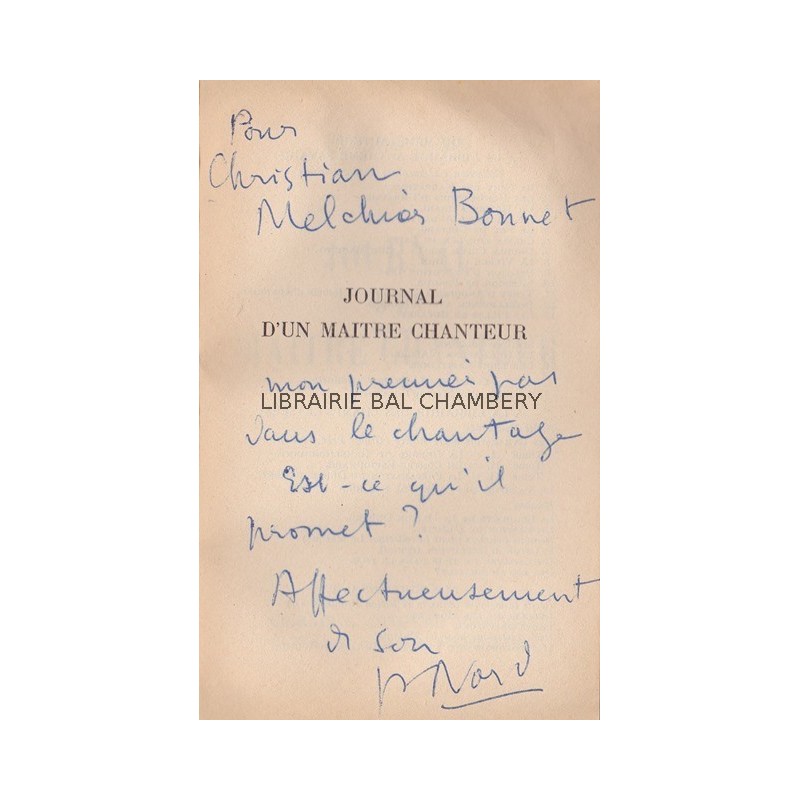 Pour
Christian
Melchior Bonnet
JOURNAL
D'UN MAITRE CHANTEUR
mon premier pas
LIBRAIRIE BAL CHAMBERY
dans le chantage
Est-ce qu'il
promet ?
Affectueusement
de son
P Nord